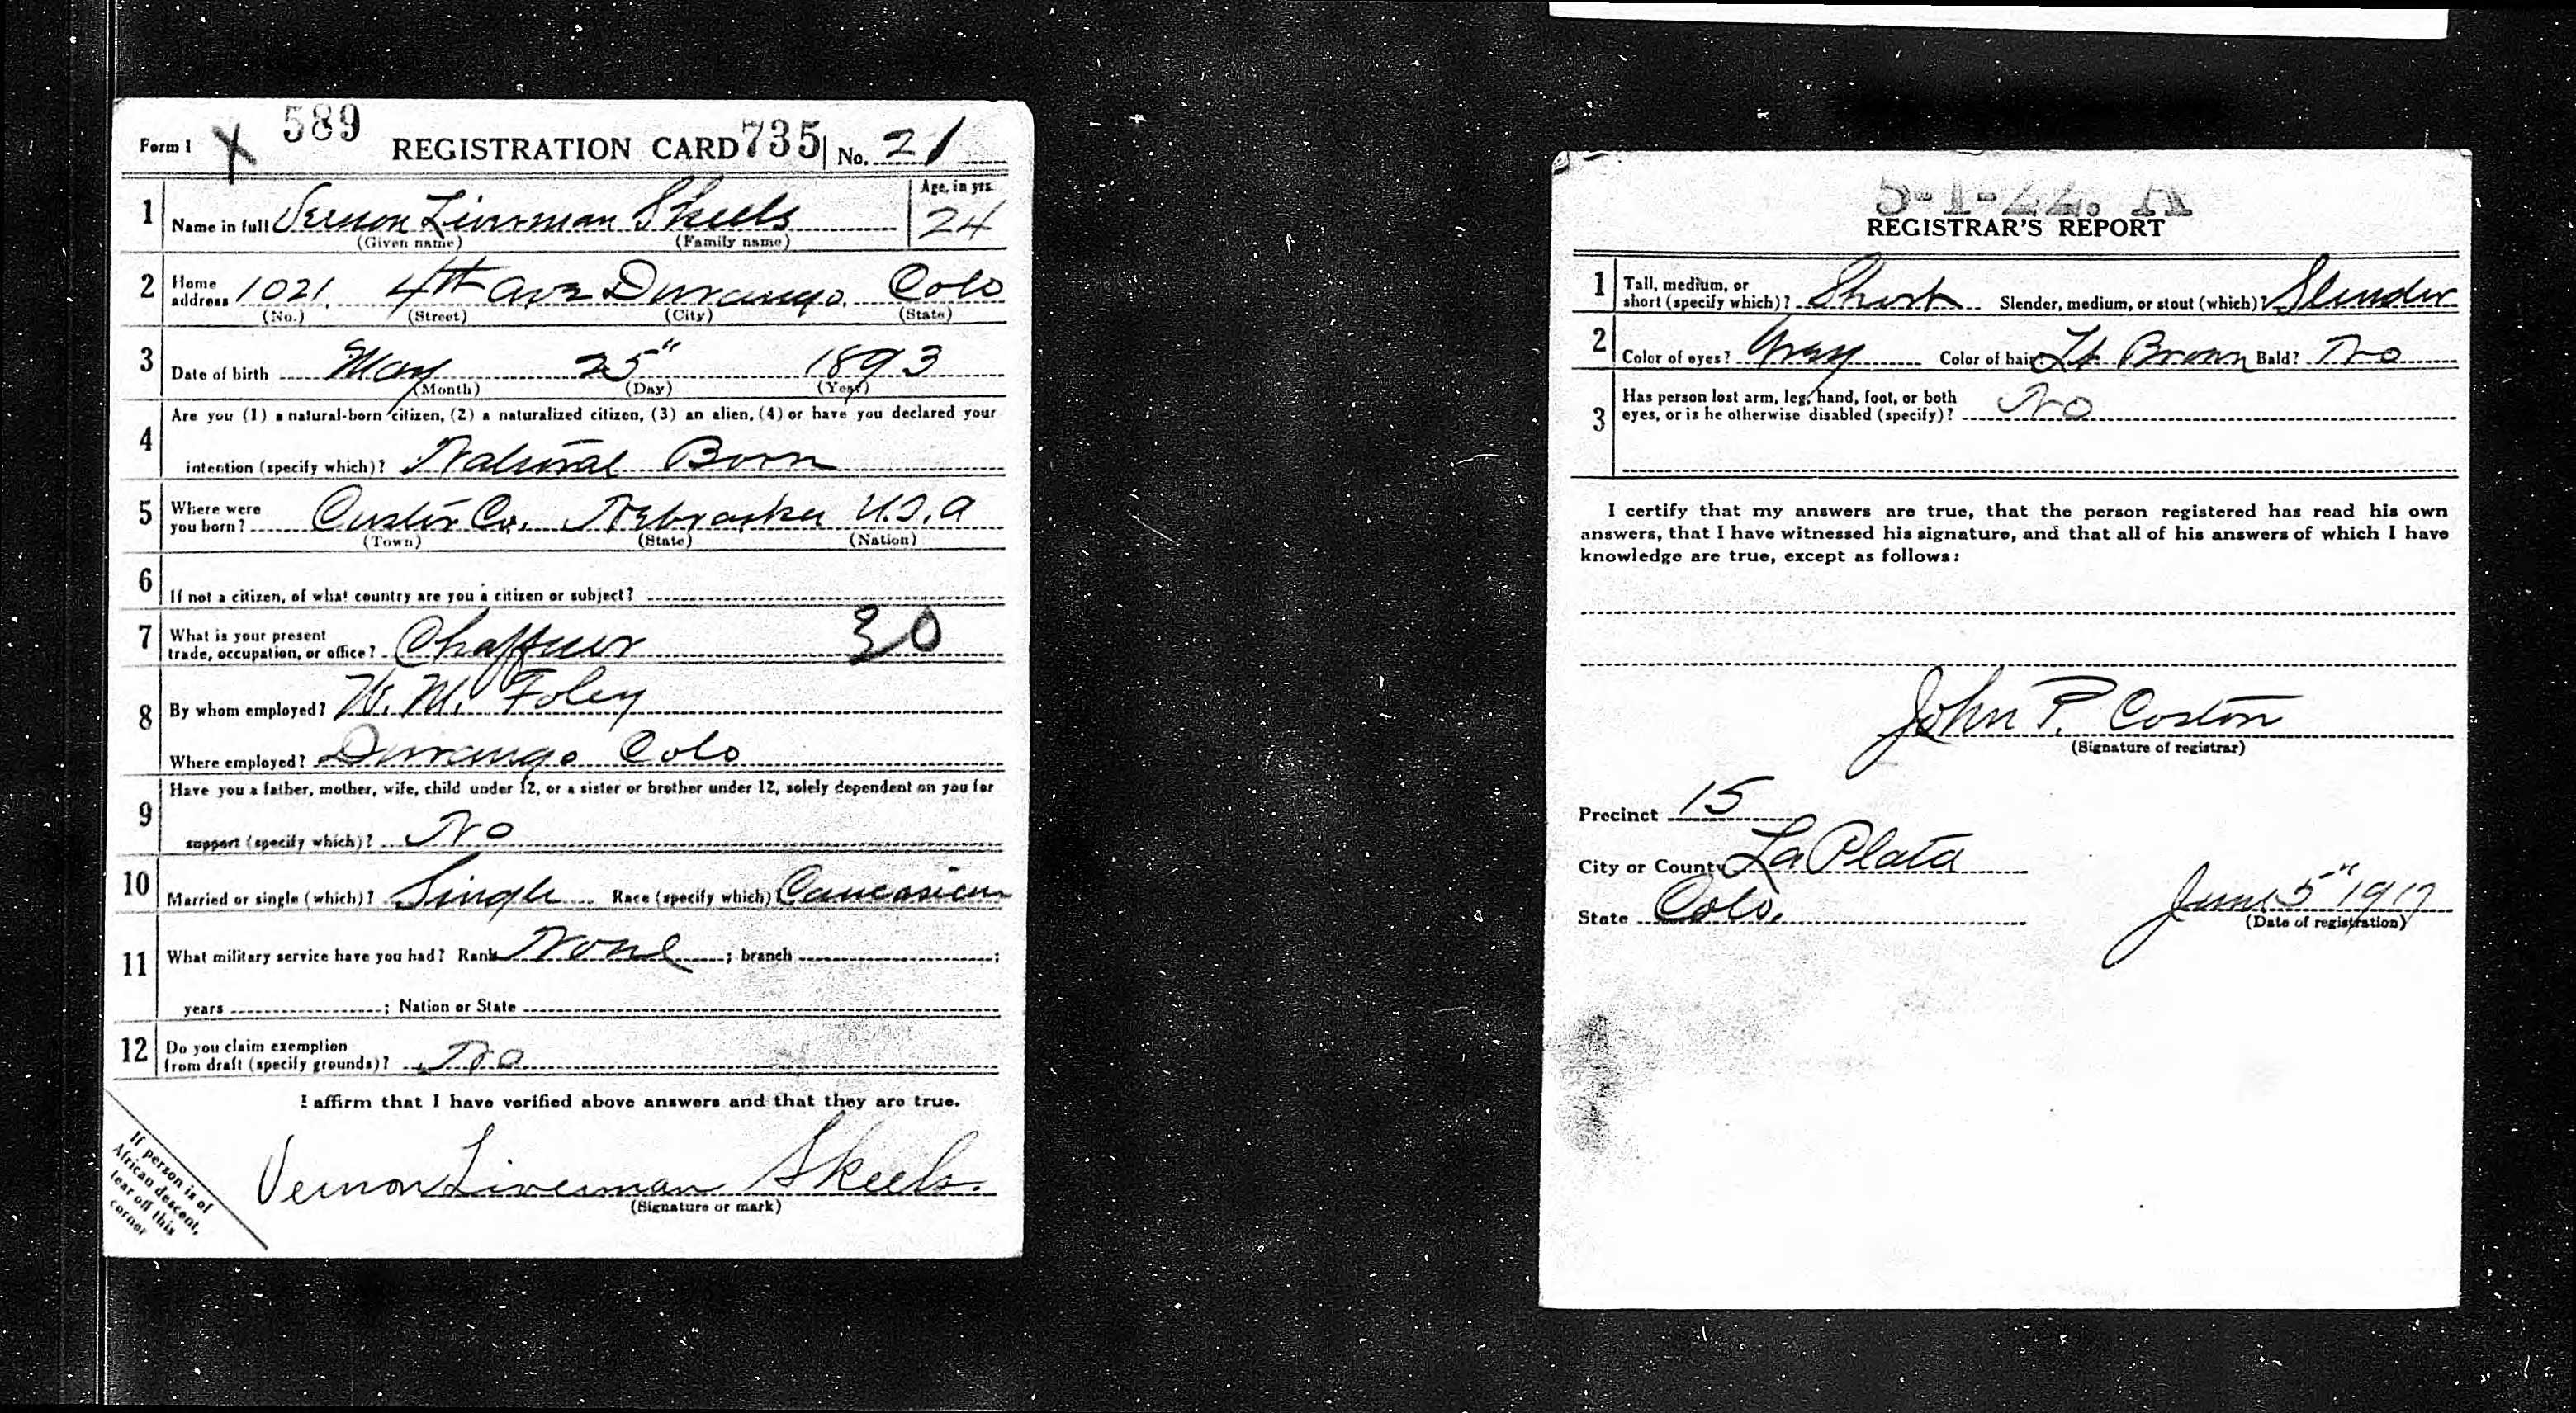 Form 1 X 589 REGISTRATION CARD 735 No. 21
1 Name in full Vernon Liverman Skeels Age, in yrs. 24
(Given name) (Family name)
2 Home address 1021 4th Ave Durango. Colo
(No.) (Street) (City) (State)
3 Date of birth May 25" 1893
(Month) (Day) (Year)
4 Are you (1) a natural-born citizen, (2) a naturalized citizen, (3) an alien, (4) or have you declared your
intention (specify which)? Natural Born
5 Where were you born? Custer Co. Nebraska U.S.A
(Town) (State) (Nation)
6 If not a citizen, of what country are you a citizen or subject?
7 What is your present trade, occupation, or office? Chaffuer 30
8 By whom employed? W. M. Foley
Where employed? Durango Colo
9 Have you a father, mother, wife, child under 12, or a sister or brother under 12, solely dependent on you for
support (specify which)? No
10 Married or single (which)? Single Race (specify which) Caucasian
11 What military service have you had? Rank None ; branch ;
years ; Nation or State
12 Do you claim exemption from draft (specify grounds)? No
I affirm that I have verified above answers and that they are true.
Vernon Liverman Skeels.
(Signature or mark)
If person is of
African descent,
tear off this
corner
5-1-22. A
REGISTRAR'S REPORT
1 Tall, medium, or short (specify which)? Short Slender, medium, or stout (which)? Slender
2 Color of eyes? Gray Color of hair Lt Brown Bald? No
3 Has person lost arm, leg, hand, foot, or both
eyes, or is he otherwise disabled (specify)? No
I certify that my answers are true, that the person registered has read his own
answers, that I have witnessed his signature, and that all of his answers of which I have
knowledge are true, except as follows:
John P. Coston
(Signature of registrar)
Precinct 15
City or County La Plata
State Colo. June 5" 1917
(Date of registration)